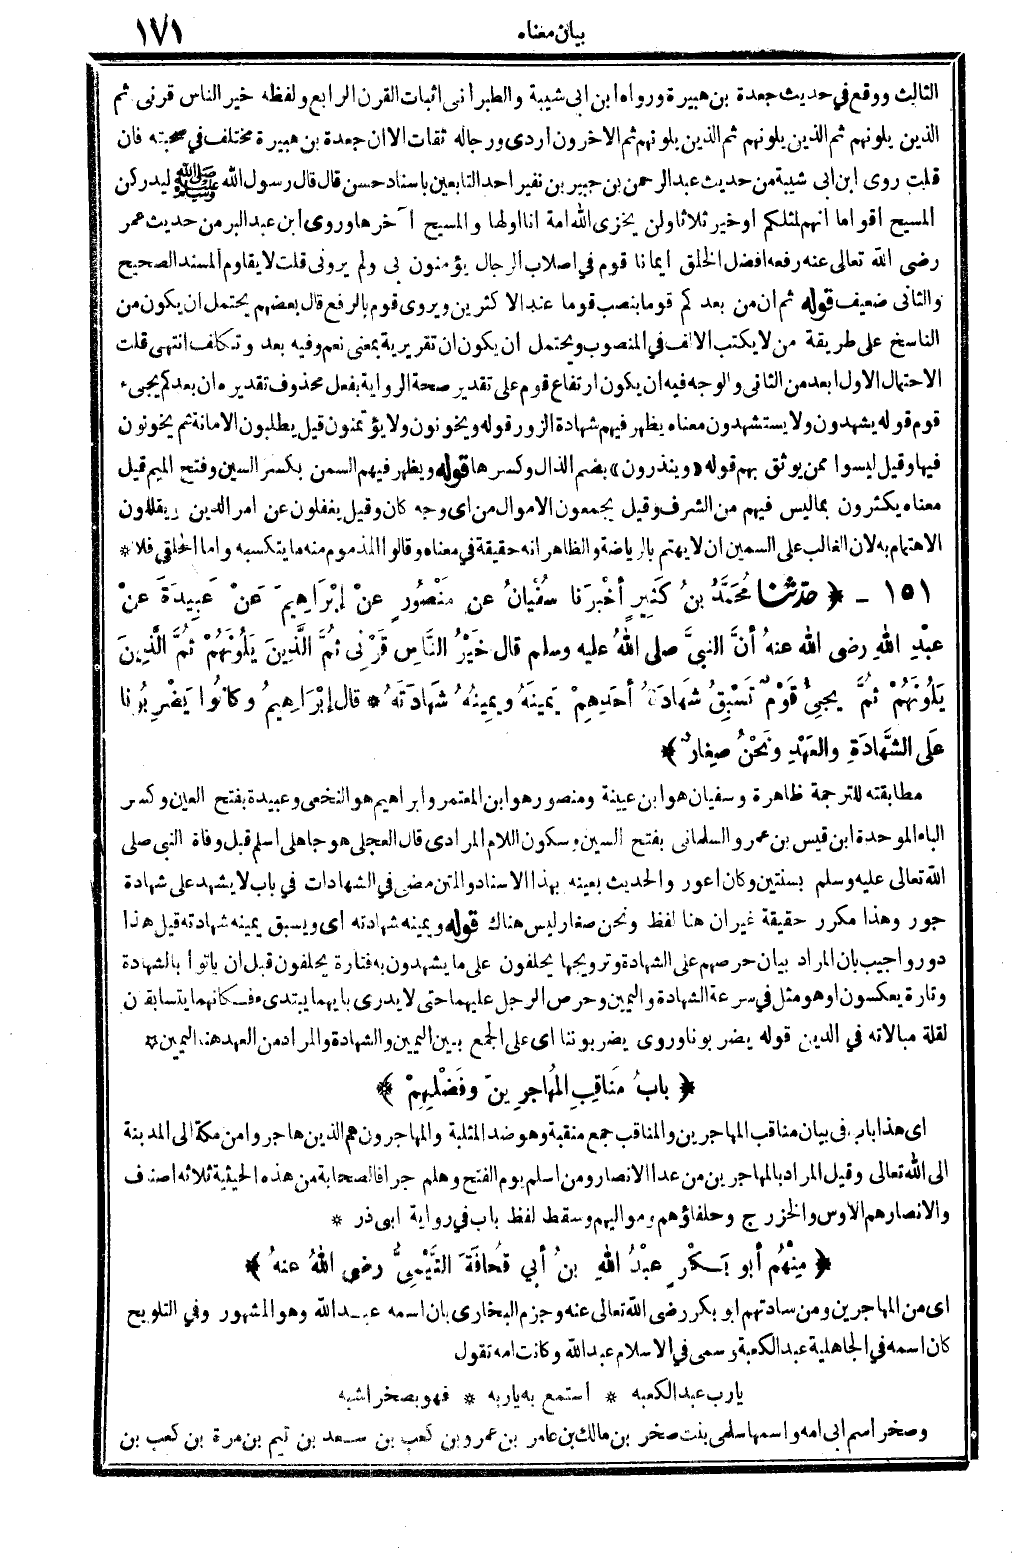 بيان معناه ١٧١
الثالث ووقع في حديث جعدة بن هبيرة ورواه ابن ابي شيبة والطبراني اثبات القرن الرابع ولفظه خير الناس قرني ثم
الذين يلونهم ثم الذين يلونهم ثم الذين يلونهم ثم الآخرون اردى ورجاله ثقات الا ان جعدة بن هبيرة مختلف في صحبته فان
قلت روى ابن ابى شيبة من حديث عبد الرحمن بن جبير بن نفير احد التابعين باسناد حسن قال قال رسول الله ﷺ ليدركن
المسيح أقواما انهم لمثلكم او خير ثلاثا ولن يخزى الله امة انا اولها والمسيح آخرها وروى ابن عبد البر من حديث عمر
رضى الله تعالى عنه رفعه افضل الخلق ايمانا قوم في اصلاب الرجال يؤمنون بى ولم يرونى قلت لا يقاوم المسند الصحيح
والثانى ضعيف قوله ثم ان من بعدكم قوما بنصب قوما عند الاكثرين ويروى قوم بالرفع قال بعضهم يحتمل ان يكون من
الناسخ على طريقة من لا يكتب الالف في المنصوب ويحتمل ان يكون ان تقريرية بمعنى نعم وفيه بعد وتكلف انتهى قلت
الاحتمال الاول ابعد من الثانى والوجه فيه ان يكون ارتفاع قوم على تقدير صحة الرواية بفعل محذوف تقديره ان بعدكم يجىء
قوم قوله يشهدون ولا يستشهدون معناه يظهر فيهم شهادة الزور قوله ويخونون ولا يؤتمنون قيل يطلبون الامانة ثم يخونون
فيها وقيل ليسوا ممن يوثق بهم قوله «وينذرون» بضم الذال وكسرها قوله ويظهر فيهم السمن بكسر السين وفتح الميم قيل
معناه يكثرون بما ليس فيهم من الشرف وقيل يجمعون الاموال من اى وجه كان وقيل يغفلون عن امر الدين ويقللون
الاهتمام به لان الغالب على السمين ان لا يهتم بالرياضة والظاهر انه حقيقة في معناه وقالوا المذموم منه ما يتكسبه واما الخلقي فلا *
١٥١ - ﴿ حدثنا مُحَمَّدُ بنُ كَثِيرٍ أخْبَرَنا سُفْيانُ عن مَنْصُورٍ عنْ إبْرَاهِيمَ عَنْ عَبِيدَةَ عنْ
عبْدِ اللهِ رضى الله عنهُ أنَّ النبيَّ صلى اللهُ عليه وسلم قال خَيْرُ النَّاسِ قَرْنِى ثُمَّ الَّذِينَ يَلُونَهُمْ ثُمَّ الَّذِينَ
يَلُونَهُمْ ثُمَّ يَجىءُ قَوْمٌ تَسْبِقُ شهَادَةُ أحَدِهِمْ يَمِينَهُ ويَمِينُهُ شَهَادَتَهُ * قال إبْرَاهِيمُ وكانُوا يَضْرِبُونا
عَلَى الشَّهَادَةِ والعَهْدِ ونَحْنُ صِغارٌ ﴾
مطابقته للترجمة ظاهرة وسفيان هو ابن عيينة ومنصور هو ابن المعتمر وابراهيم هو النخعى وعبيدة بفتح العين وكسر
الباء الموحدة ابن قيس بن عمرو السلمانى بفتح السين وسكون اللام المرادى قال العجلى هو جاهلى اسلم قبل وفاة النبي صلى
الله تعالى عليه وسلم بسنتين وكان اعور والحديث بعينه بهذا الاسناد والمتن مضى في الشهادات في باب لا يشهد على شهادة
جور وهذا مكرر حقيقة غير ان هنا لفظ ونحن صغار ليس هناك قوله ويمينه شهادته اى ويسبق يمينه شهادته قيل هذا
دور واجيب بان المراد بيان حرصهم على الشهادة وترويجها يحلفون على ما يشهدون به فتارة يحلفون قبل ان يأتوا بالشهادة
وتارة يعكسون او هو مثل في سرعة الشهادة واليمين وحرص الرجل عليهما حتى لا يدرى بايهما يبتدىء فكانهما يتسابقان
لقلة مبالاته في الدين قوله يضربونا وروى يضربوننا اى على الجمع بين اليمين والشهادة والمراد من العهد هنا اليمين *
﴿ بابُ مَناقِبِ المُهاجرِينَ وفَضْلِهِمْ ﴾
اى هذا باب في بيان مناقب المهاجرين والمناقب جمع منقبة وهو ضد المثلبة والمهاجرون هم الذين هاجروا من مكة الى المدينة
الى الله تعالى وقيل المراد بالمهاجرين من عدا الانصار ومن اسلم يوم الفتح وهلم جرا فالصحابة من هذه الحيثية ثلاثة اصناف
والانصار هم الاوس والخزرج وحلفاؤهم ومواليهم وسقط لفظ باب في رواية ابى ذر *
﴿ مِنْهُم أبو بَكْرٍ عبْدُ اللهِ بنُ أبي قُحافَةَ التَّيْمِىُّ رضى اللهُ عنهُ ﴾
اى من المهاجرين ومن سادتهم ابو بكر رضى الله تعالى عنه وجزم البخارى بان اسمه عبد الله وهو المشهور وفي التلويح
كان اسمه في الجاهلية عبد الكعبة وسمى في الاسلام عبد الله وكانت امه تقول
يارب عبد الكعبه * استمع به يا ربه * فهو بصخر اشبه
وصخر اسم ابى امه واسمها سلمى بنت صخر بن مالك بن عامر بن عمرو بن كعب بن سعد بن تيم بن مرة بن كعب بن